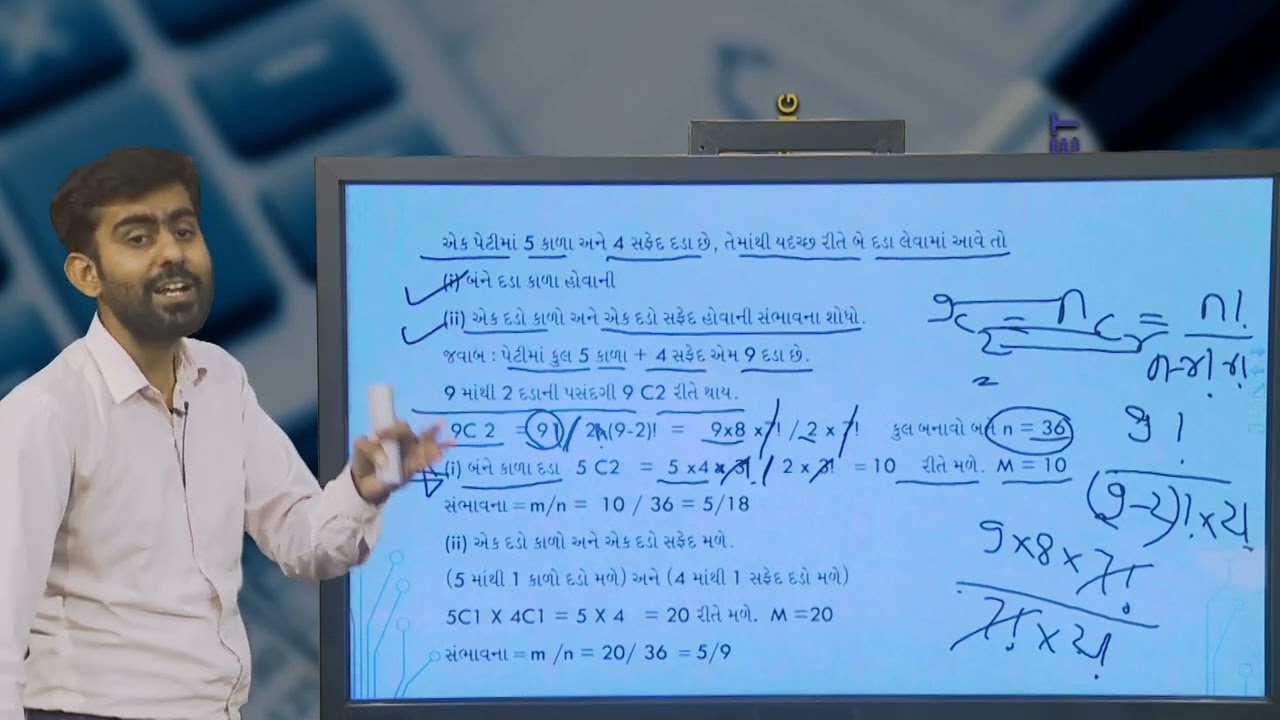 G
ET
એક પેટીમાં 5 કાળા અને 4 સફેદ દડા છે, તેમાંથી યદચ્છ રીતે બે દડા લેવામાં આવે તો
(i) બંને દડા કાળા હોવાની
(ii) એક દડો કાળો અને એક દડો સફેદ હોવાની સંભાવના શોધો.
જવાબ : પેટીમાં કુલ 5 કાળા + 4 સફેદ એમ 9 દડા છે.
9 માંથી 2 દડાની પસંદગી 9 C2 રીતે થાય.
9C 2 = 9! / 2! (9-2)! = 9x8 x 7! / 2 x 7! કુલ બનાવો n = 36
(i) બંને કાળા દડા 5 C2 = 5 x4 x 3! / 2 x 3! = 10 રીતે મળે. M = 10
સંભાવના = m/n = 10 / 36 = 5/18
(ii) એક દડો કાળો અને એક દડો સફેદ મળે.
(5 માંથી 1 કાળો દડો મળે) અને (4 માંથી 1 સફેદ દડો મળે)
5C1 X 4C1 = 5 X 4 = 20 રીતે મળે. M =20
સંભાવના = m /n = 20/ 36 = 5/9
9C2 = nCr = n!
n-r! r!
9!
(9-2)! x 2!
9 x 8 x 7!
7! x 2!